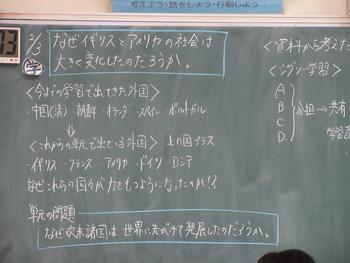 考えよう・話をしよう・行動しよう
2/3
学
なぜイギリスとアメリカの社会は
大きく変化したのだろうか。
<今までの学習で出てきた外国>
・中国(清)・朝鮮・オランダ・スペイン・ポルトガル
<これからの単元で出てくる外国> 上の国プラス
・イギリス・フランス・アメリカ・ドイツ・ロシア
なぜこれらの国々が力をもつようになったのか!?
単元の問題
なぜ欧米諸国は世界に先がけて発展したのだろうか。
<資料から考え
<ジグソー学習>
A
B
C
D
分担→共有
学習課